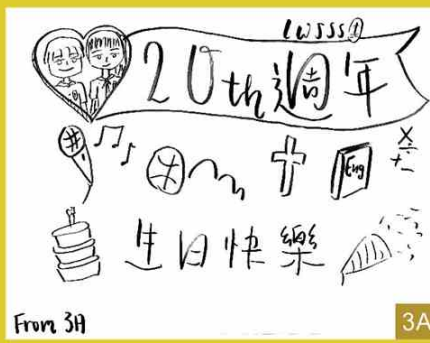 LWSSS
20th週年
Eng
生日快樂
From 3A
3A